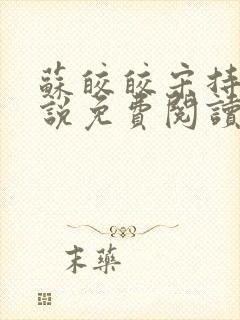 蘇皎皎宋持
說免費閱讀
末藥